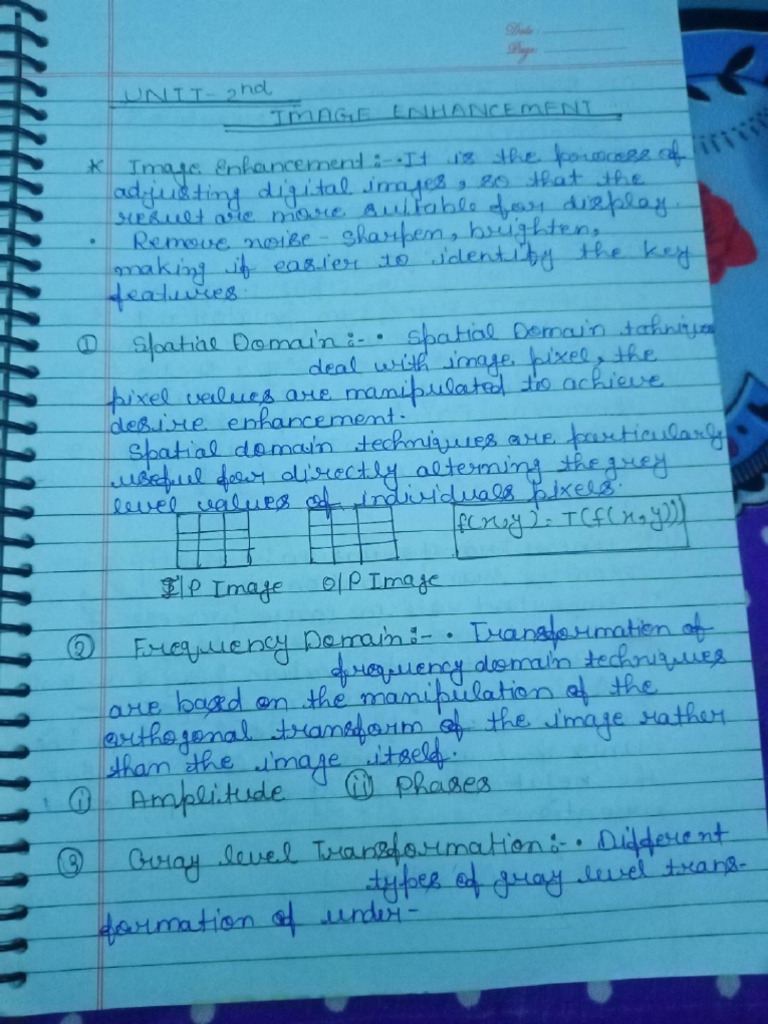 Date:
Page:
UNIT-2nd
IMAGE ENHANCEMENT
* Image enhancement:-. It is the process of
adjusting digital images, so that the
result are more suitable for display.
. Remove noise - sharpen, brighten,
making if easier to identify the key
features.
① Spatial Domain:- . Spatial Domain tchniques
deal with image pixel, the
pixel values are manipulated to achieve
desire enhancement.
Spatial domain techniques are particularly
useful for directly alterning the grey
level values of individuals pixels.
f(x,y) = T(f(x,y))
I/P Image O/P Image
② Frequency Domain:- . Transformation of
frequency domain techniques
are based on the manipulation of the
orthogonal transform of the image rather
than the image itself.
ⓘ Amplitude ⓘⓘ Phases
③ Gray level Transformation:- . Different
types of gray level trans-
formation of under-